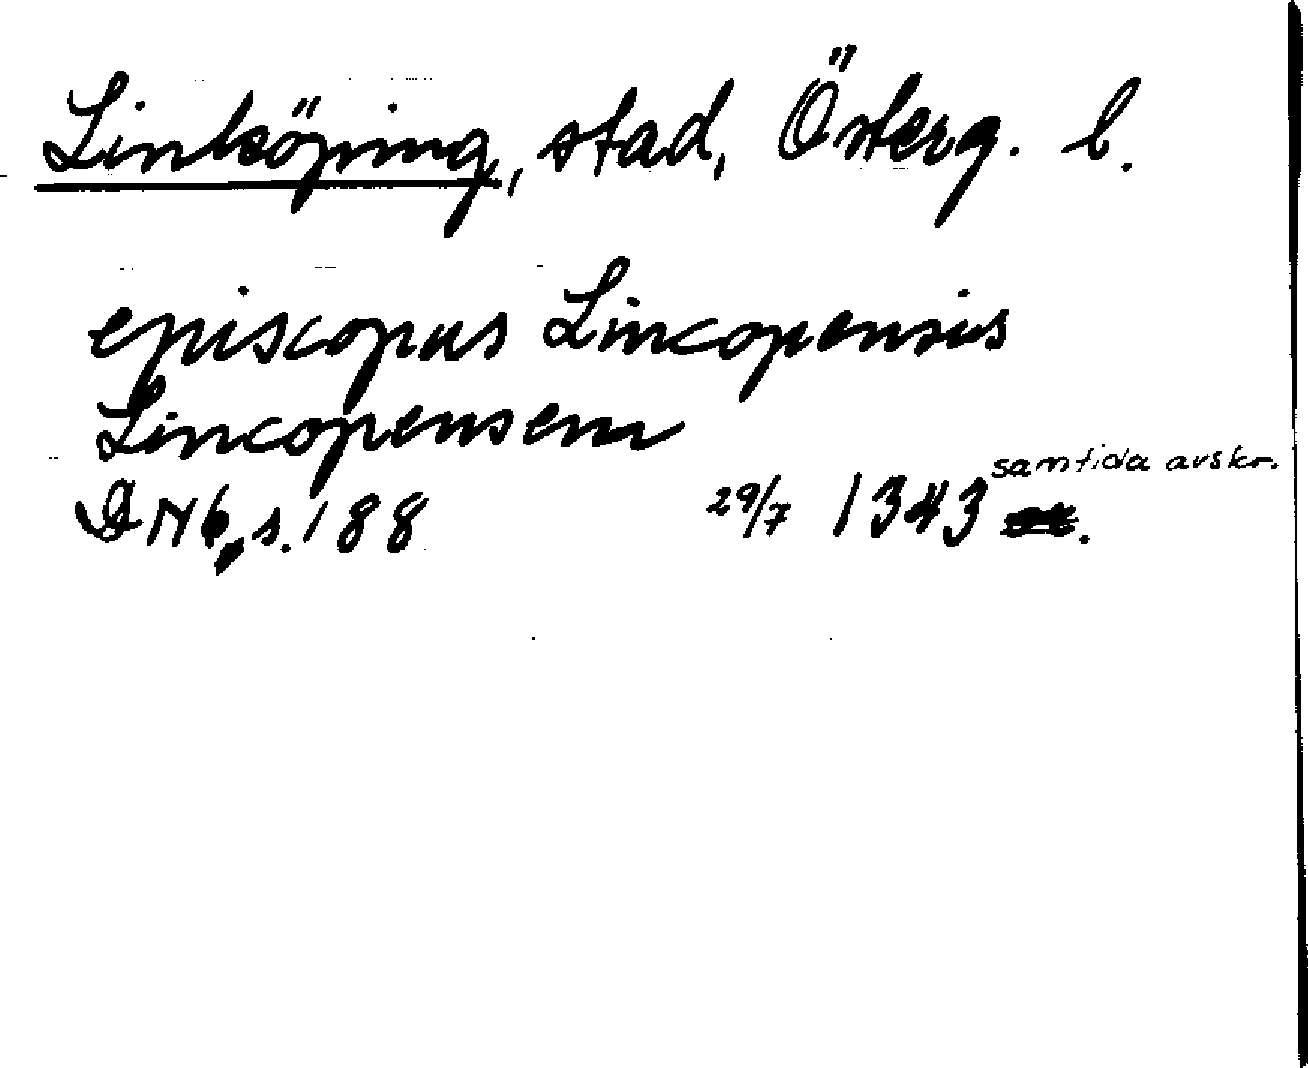 Linköping, stad, Österg. l.
episcopus Lincopensis
Lincopensem
DN 6, s. 188 29/7 1343 samtida avskr.